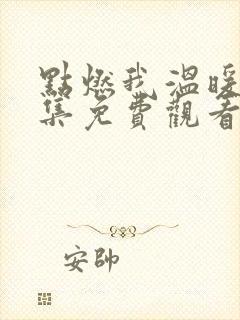 點燃我溫暖
集免費觀看
安帥